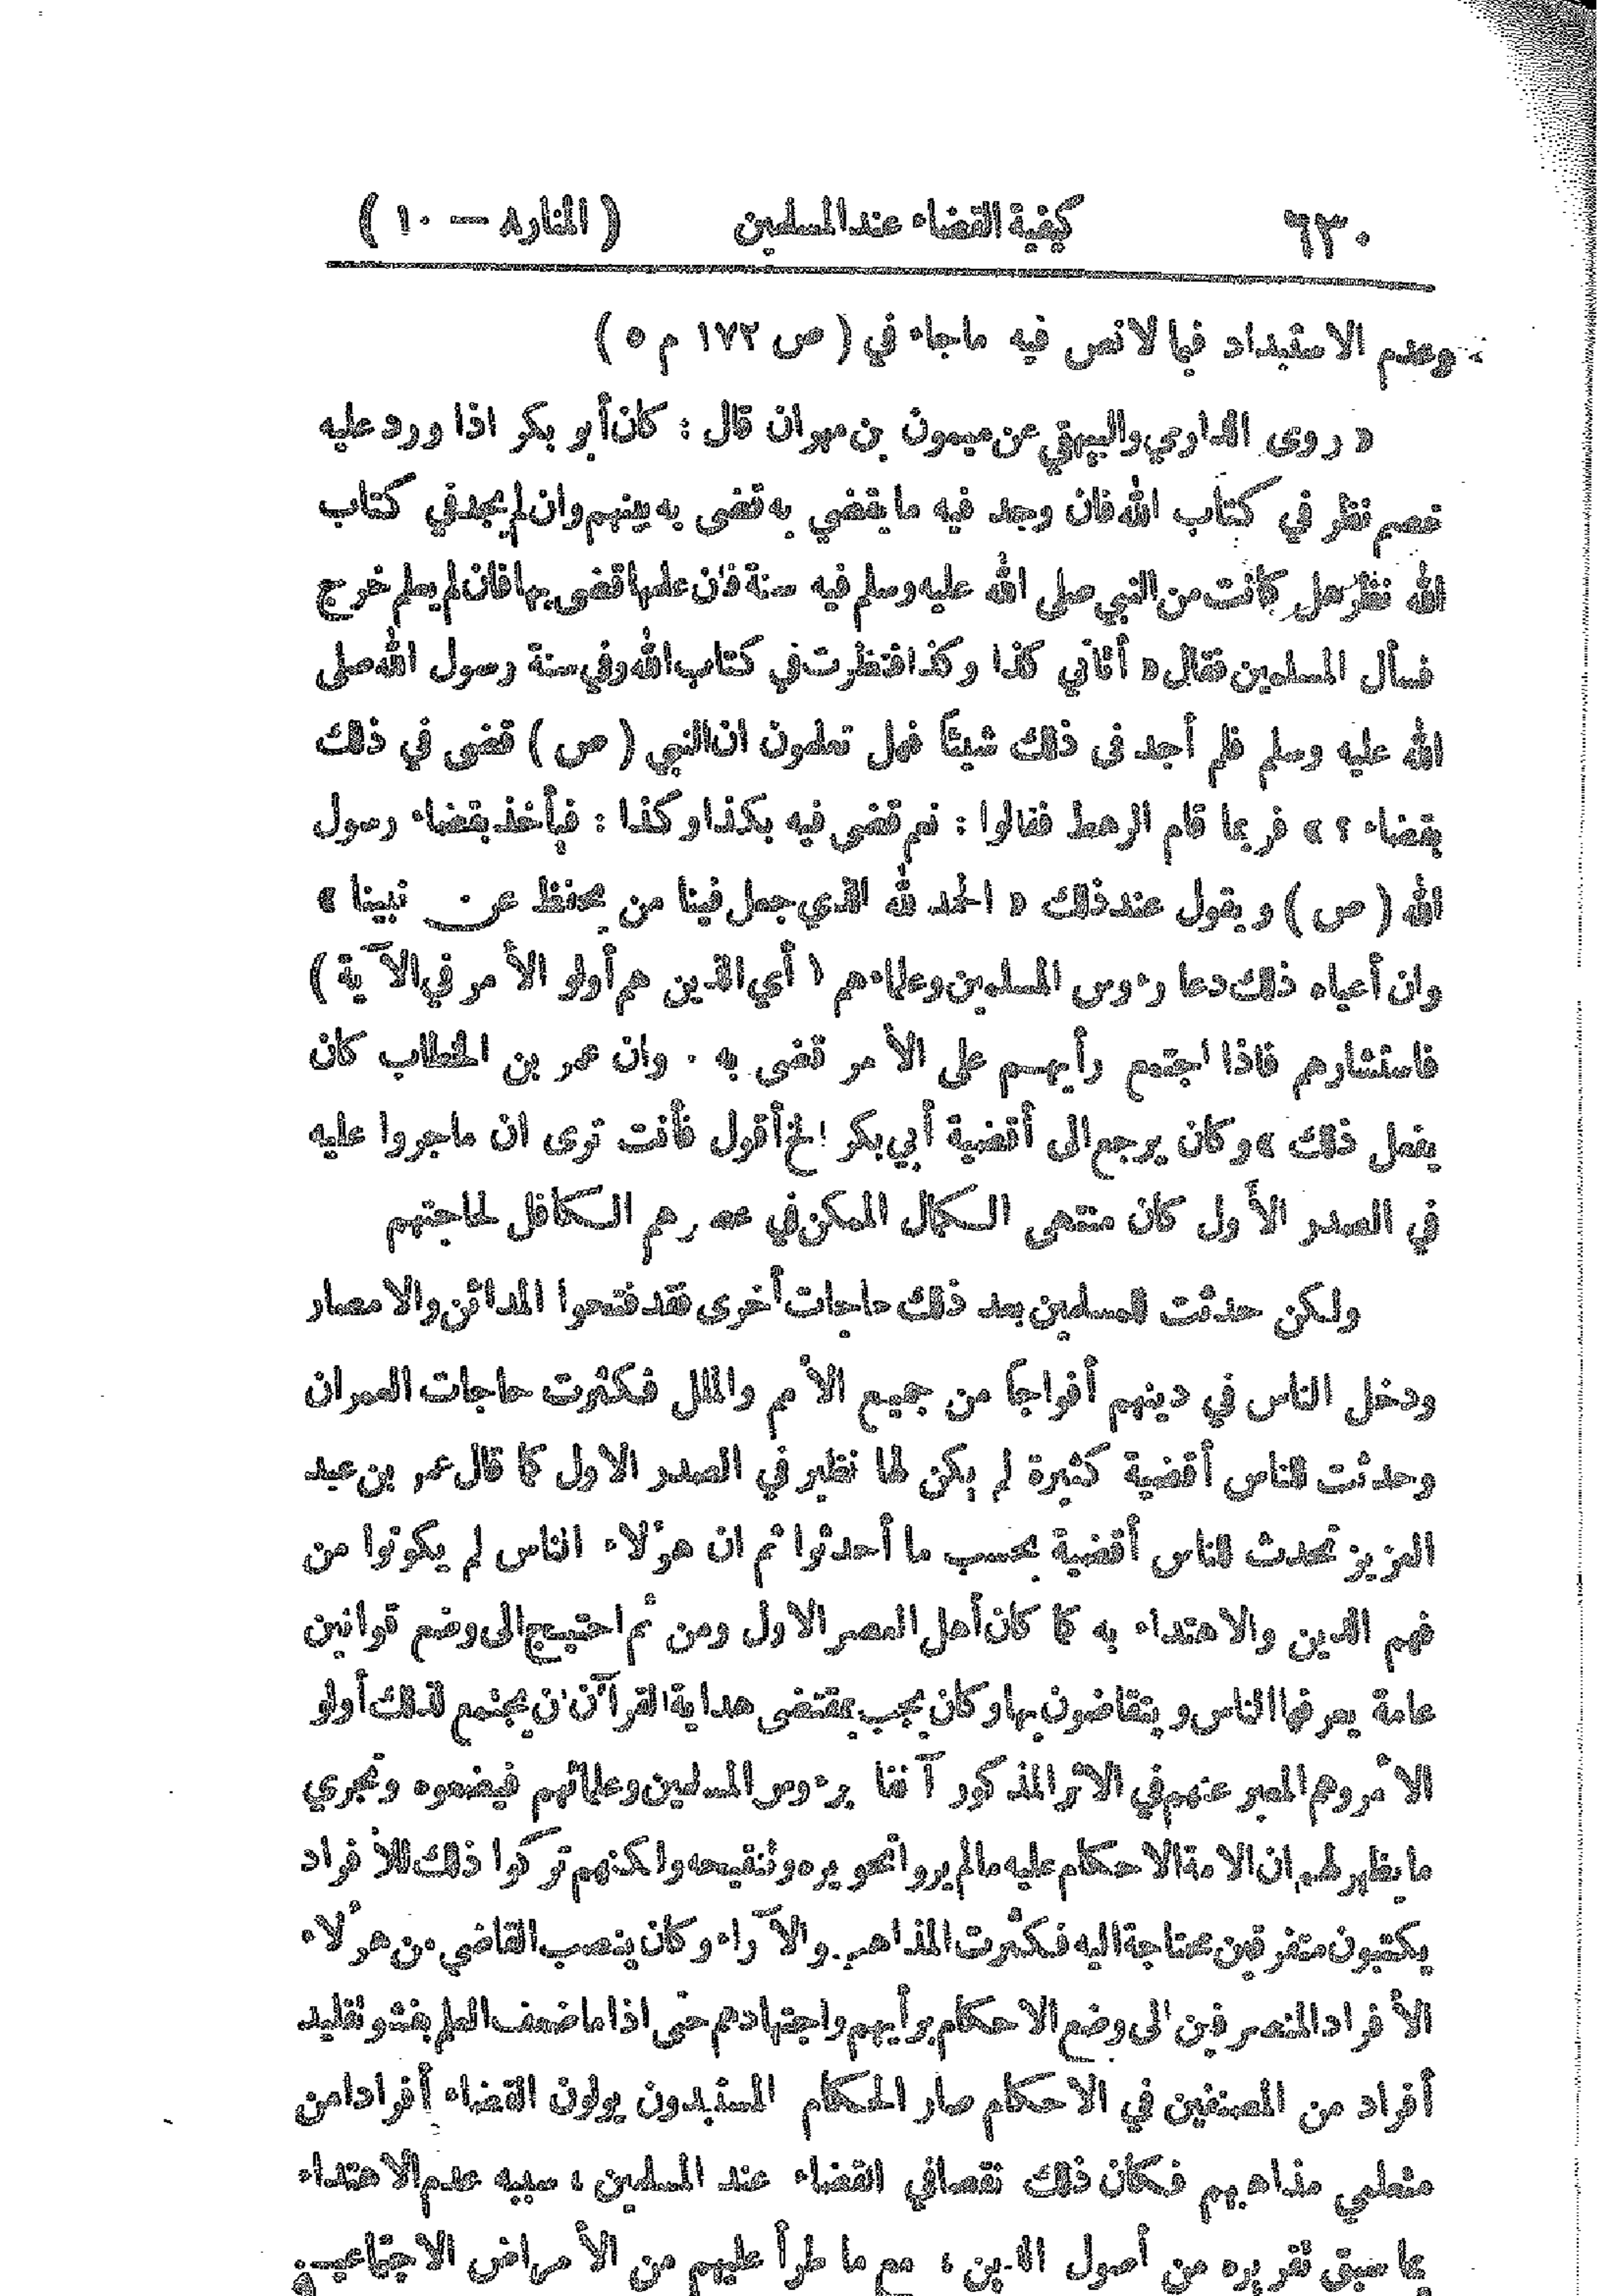 ٦٣٠ كيفية القضاء عند المسلمين ( المنار ٨ — ١٠ )
وعدم الاستبداد فيما لا نص فيه ماجاء في ( ص ١٧٢ م ٥ )
« روى الدارمي والبيهقي عن ميمون بن مهران قال : كان أبو بكر اذا ورد عليه
خصم نظر في كتاب الله فان وجد فيه ما يقضي به قضى به بينهم وان لم يجد في كتاب
الله نظر هل كانت من النبي صلى الله عليه وسلم فيه سنة فان علمها قضى بها فان لم يعلم خرج
فسأل المسلمين فقال « أتاني كذا وكذا فنظرت في كتاب الله وفي سنة رسول الله صلى
الله عليه وسلم فلم أجد في ذلك شيئًا فهل تعلمون ان النبي ( ص ) قضى في ذلك
بقضاء ؟ » فربما قام الرهط فقالوا : نعم قضى فيه بكذا وكذا : فيأخذ بقضاء رسول
الله ( ص ) ويقول عند ذلك « الحمد لله الذي جعل فينا من يحفظ عن نبينا »
وان أعياه ذلك دعا رءوس المسلمين وعلماءهم ( أي الذين هم أولو الأمر في الآية )
فاستشارهم فاذا اجتمع رأيهم على الأمر قضى به . وان عمر بن الخطاب كان
يفعل ذلك » وكان يرجع الى أقضية أبي بكر الخ أقول فأنت ترى ان ماجروا عليه
في الصدر الأول كان منتهى الكمال الممكن في عصرهم الكافل لحاجتهم
ولكن حدثت للمسلمين بعد ذلك حاجات أخرى فقد فتحوا المدائن والامصار
ودخل الناس في دينهم أفواجًا من جميع الأمم والملل فكثرت حاجات العمران
وحدثت للناس أقضية كثيرة لم يكن لها نظير في الصدر الاول كما قال عمر بن عبد
العزيز تحدث للناس أقضية بحسب ما أحدثوا ثم ان هؤلاء الناس لم يكونوا من
فهم الدين والاهتداء به كما كان أهل العصر الاول ومن ثم احتيج الى وضع قوانين
عامة يعرفها الناس ويتقاضون بها وكان يجب بمقتضى هداية القرآن أن يجتمع لذلك أولو
الأمر وهم المعبر عنهم في الاثر المذكور آنفا برءوس المسلمين وعلمائهم فيضعوه وتجري
ما يظهر لهم ان الامة الاحكام عليه مالم يروا تحويره وتنقيحه ولكنهم تركوا ذلك للأفراد
يكتبون متفرقين محتاجة اليه فكثرت المذاهب والآراء وكان ينصب القاضي من هؤلاء
الأفراد المنصرفين الى وضع الاحكام برأيهم واجتهادهم حتى اذا ما ضعف العلم بفشو تقليد
أفراد من المصنفين في الاحكام صار الحكام المستبدون يولون القضاء أفرادا من
متعلمي مذاهبهم فكان ذلك نقصا في القضاء عند المسلمين ، سببه عدم الاهتداء
بما سبق تقريره من أصول الدين ، مع ما طرأ عليهم من الأمراض الاجتماعية